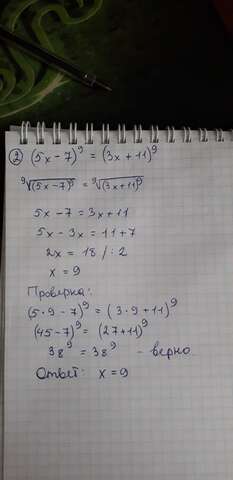 ② (5x-7)⁹ = (3x+11)⁹
⁹√(5x-7)⁹ = ⁹√(3x+11)⁹
5x-7 = 3x+11
5x-3x = 11+7
2x = 18 /:2
x = 9
Проверка:
(5·9-7)⁹ = (3·9+11)⁹
(45-7)⁹ = (27+11)⁹
38⁹ = 38⁹ - верно
Ответ: x = 9